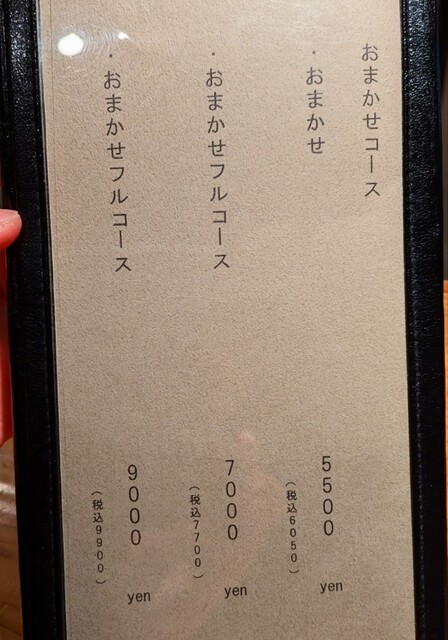 おまかせコース
・おまかせ
5500 yen
(税込6050)
・おまかせフルコース
7000 yen
(税込7700)
・おまかせフルコース
9000 yen
(税込9900)